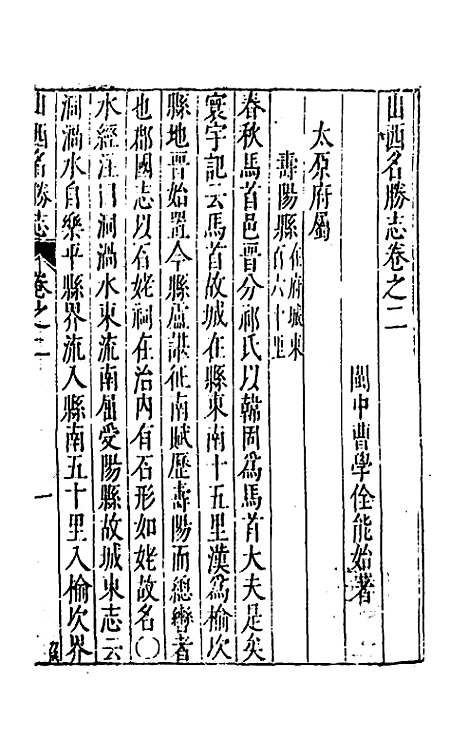 山西名勝志卷之二
閩中曹學佺能始著
太原府屬
壽陽縣在府城東百六十里
春秋馬首邑晋分祁氏以韓固爲馬首大夫是矣
寰宇記云馬首故城在縣東南十五里漢爲榆次
縣地晋始置今縣盧諶征南賦歷壽陽而總轡者
也郡國志以石姥祠在治内有石形如姥故名〇
水經注曰洞渦水東流南屈受陽縣故城東志云
洞渦水自樂平縣界流入縣南五十里入榆次界
山西名勝志 卷之二 一